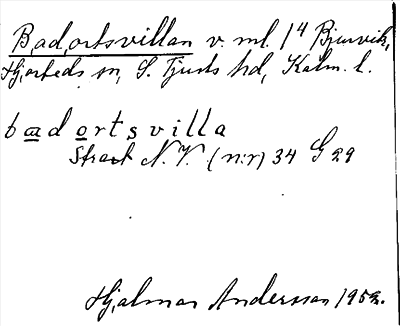 Badortsvillan v. ml. 1⁴ Bjurvik,
Hjorteds sn, S. Tjusts hd, Kalm. l.
badortsvilla
Strax N.V. (n:r) 34 G 29
Hjalmar Andersson 1952.